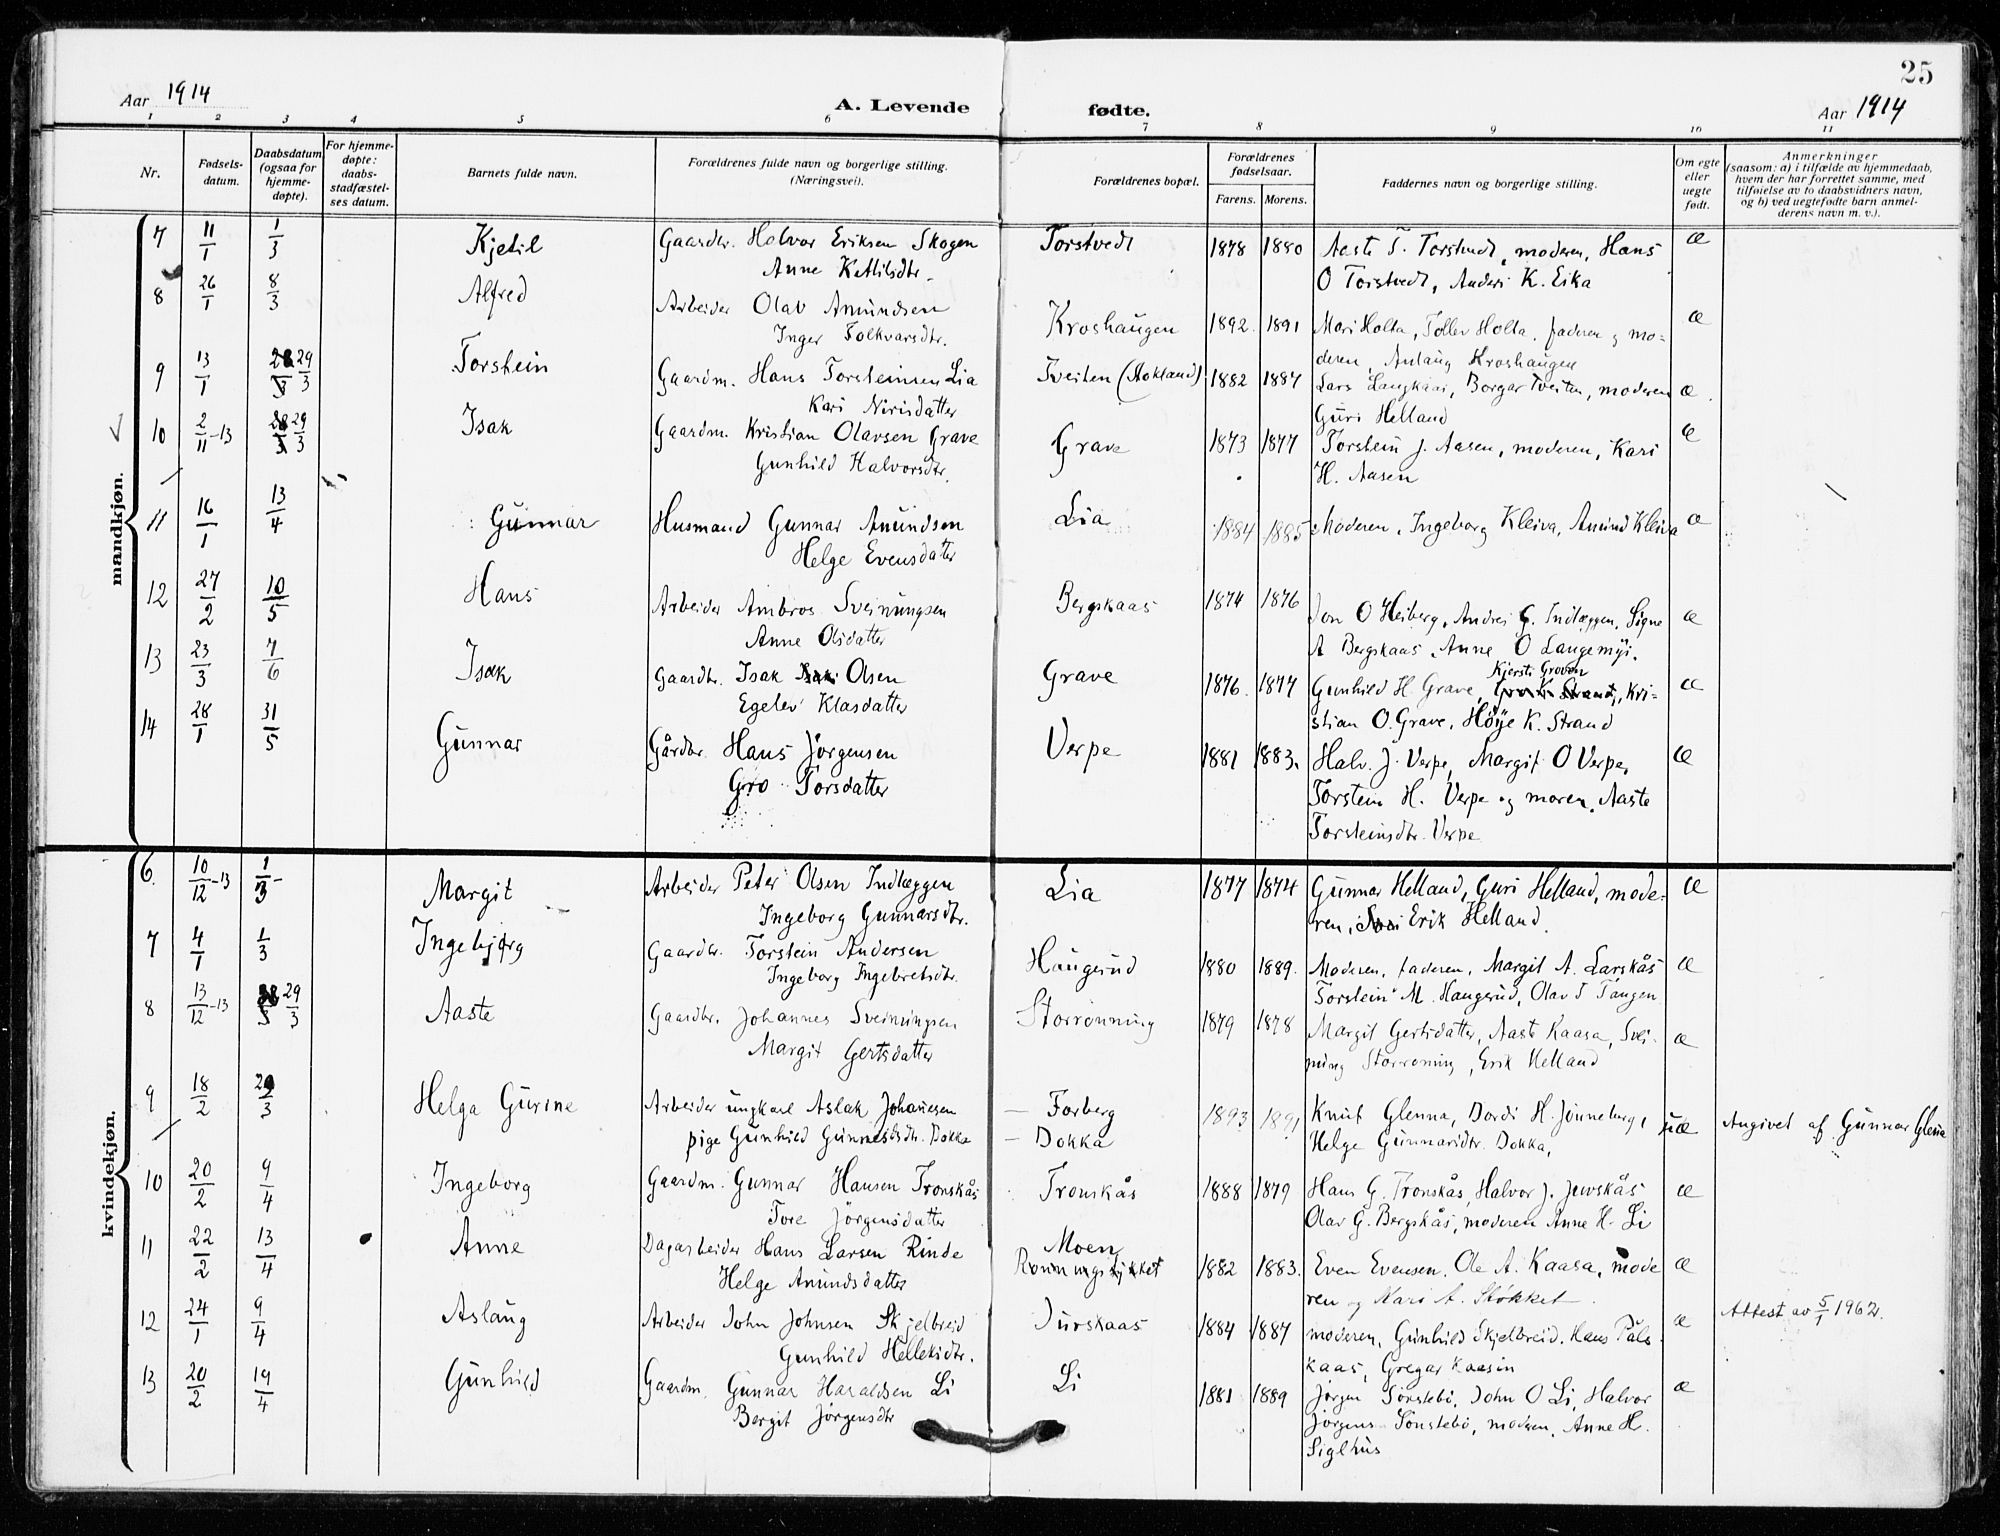 25
Aar 1914
A. Levende fødte.
Aar 1914
1 2 3 4 5 6 7 8 9 10 11
Nr.
Fødsels-
datum.
Daabsdatum
(ogsaa for
hjemme-
døpte).
For hjemme-
døpte:
daabs-
stadfæstel-
ses datum.
Barnets fulde navn.
Forældrenes fulde navn og borgerlige stilling.
(Næringsvei).
Forældrenes bopæl.
Forældrenes
fødselsaar.
Farens. Morens.
Faddernes navn og borgerlige stilling.
Om egte
eller
uegte
født.
Anmerkninger
(saasom: a) i tilfælde av hjemmedaab,
hvem der har forrettet samme, med
tilføielse av to daabsvidners navn,
og b) ved uegtefødte barn anmel-
derens navn m. v.).
mandkjøn.
7 11/1 1/3 Kjetil Gaardbr. Halvor Eriksen Skogen Torstvedt 1878 1880 Aaste T. Torstvedt, moderen, Hans Æ
Anne Ketilsdtr. O Torstvedt, Anders K. Eika
8 26/1 8/3 Alfred Arbeider Olav Amundsen Kroshaugen 1892. 1891 Mari Holta, Tollev Holta, faderen og mo= Æ
Inger Folkvarsdtr. deren, Anlaug Kroshaugen
9 13/1 28/3 29/3 Torstein Gaardm. Hans Torsteinsen Lia Tveiten (Hokland) 1882 1887 Lars Langkaas, Borgar Tveiten, moderen Æ.
Kari Nirisdatter Guri Helland
10 2/11-13 28/3 29/3 Isak Gaardm. Kristian Olavsen Grave Grave 1873 1877 Torstein J. Aasen, moderen, Kari Æ
Gunhild Halvorsdtr. H. Aasen
11 16/1 13/4 Gunnar Husmand Gunnar Anundsen Lia 1884 1885 Moderen, Ingeborg Kleiva, Anund Kleiva Æ
Helge Evensdatter
12 27/2 10/5 Hans Arbeider Ambros Sveinungsen Bergskaas 1874 1876 Jon O Heiberg, Andres G. Indlæggen, Signe Æ
Anne Olsdatter A Bergskaas, Anne O Langemyr.
13 23/3 7/6 Isak Gaardbr. Isak Olsen Grave 1876. 1877 Gunhild H. Grave, Kjersti Groven Gro K. Strand, Kri- Æ
Egelev Klasdatter stian O. Grave, Høye K. Strand
14 28/1 31/5 Gunnar Gårdbr. Hans Jørgensen Verpe 1881 1883. Halv. J. Verpe, Margit O Verpe, Æ
Gro Torsdatter Torstein H. Verpe og moren, Aaste
Torsteinsdtr. Verpe
kvindekjøn.
6. 10/12-13 1/3- Margit Arbeider Peter Olsen Indlæggen Lia 1877 1874 Gunnar Helland, Guri Helland, mode- Æ
Ingeborg Gunnarsdtr. ren, Erik Helland.
7 4/1 1/3 Ingebjørg Gaardbr. Torstein Andersen Haugerud 1880 1889. Moderen, faderen, Margit A. Larskås Æ
Ingeborg Ingebretsdtr. Torstein M. Haugerud, Olav T Tangen
8 13/12-13 28/3 29/3 Aaste Gaardbr. Johannes Sveinungsen Storrønning 1879 1878 Margit Gertsdatter, Aaste Kaasa, Svei- Æ
Margit Gertsdatter nung Storrøning, Erik Helland
9 18/2 29/3 Helga Gurine Arbeider ungkarl Aslak Johannesen — Forberg 1893 1891 Knut Glenna, Dordi H. Jønneberg, uæ Angivet af Gunnar Glenna
pige Gunhild Gunnarsdtr. Dokka — Dokka Helge Gunnarsdtr. Dokka,
10 20/2 9/4 Ingeborg Gaardm. Gunnar Hansen Tronskås Tronskås 1888 1879 Hans G. Tronskås, Halvor J. Jurskås Æ
Tore Jørgensdatter Olav G. Bergskås, moderen Anne H. Li
11 22/2 13/4 Anne Dagarbeider Hans Larsen Rinde Moen 1882 1883. Even Evensen. Ole A. Kaasa, mode Æ
Helge Anundsdatter Ronningstykket ren og Kari A. Støkket
12 24/1 9/4 Aslaug Arbeider John Johnsen Skjelbreid Jurskaas 1884 1887 moderen, Gunhild Skjelbreid, Hans Påls Æ Attest av 5/1 1962.
Gunhild Hellekidtr. kaas, Gregar Kaasin
13 20/2 19/4 Gunhild Gaardm. Gunnar Haraldsen Li Li 1881 1889 Jørgen Sønstebø, John O Li, Halvor Æ
Bergit Jørgensdtr Jørgens. Sønstebø, moderen, Anne H.
Siglhus